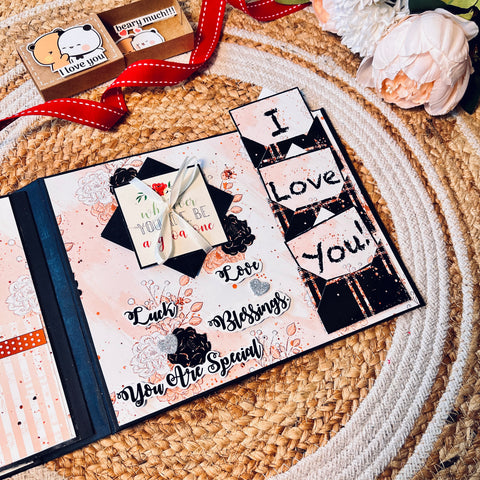 beary much!!!
I love you!
I
Love
You!
wh
YOU BE
a good one
Love
Luck
Blessings
You Are Special